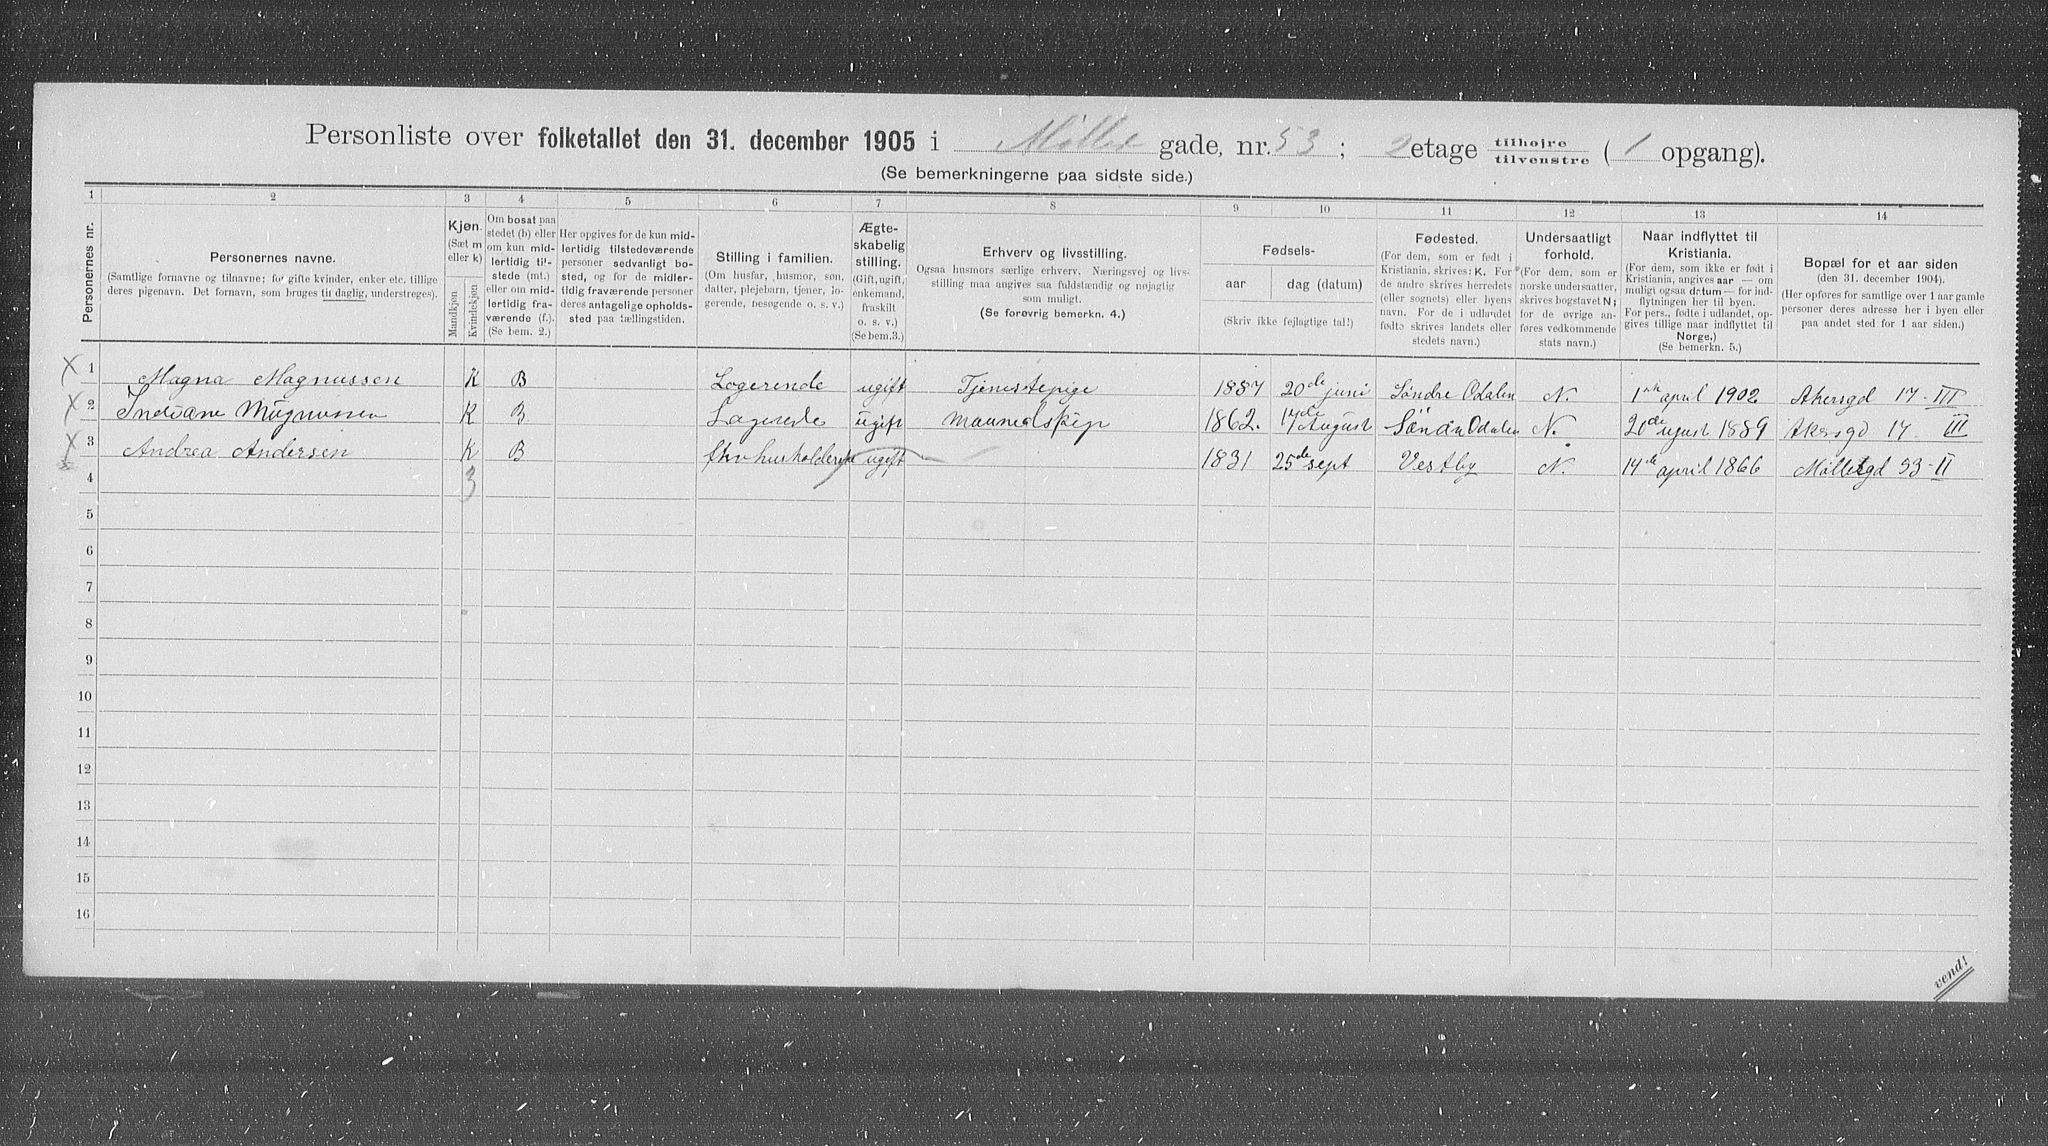 Personliste over folketallet den 31. december 1905 i Møller gade, nr. 53 ; 2 etage tilhøjre tilvenstre ( 1 opgang).
(Se bemerkningerne paa sidste side.)
1 2 3 4 5 6 7 8 9 10 11 12 13 14
Personernes nr.
Personernes navne.
(Samtlige fornavne og tilnavne; for gifte kvinder, enker etc. tillige
deres pigenavn. Det fornavn, som bruges til daglig, understreges).
Kjøn.
(Sæt m
eller k)
Mandkjøn
Kvindekjøn
Om bosat paa
stedet (b) eller
om kun mid-
lertidig til-
stede (mt.)
eller om mid-
lertidig fra-
værende (f.).
(Se bem. 2.)
Her opgives for de kun mid-
lertidig tilstedeværende
personer sedvanligt bo-
sted, og for de midler-
tidig fraværende personer
deres antagelige opholds-
sted paa tællingstiden.
Stilling i familien.
(Om husfar, husmor, søn,
datter, plejebarn, tjener, lo-
gerende, besøgende o. s. v.)
Ægte-
skabelig
stilling.
(Gift, ugift,
enkemand,
fraskilt
o. s. v.)
(Se bem.3.)
Erhverv og livsstilling.
Ogsaa husmors særlige erhverv. Næringsvej og livs-
stilling maa angives saa fuldstændig og nøjagtig
som muligt.
(Se forøvrig bemerkn. 4.)
Fødsels-
aar
dag (datum)
(Skriv ikke fejlagtige tal!)
Fødested.
(For dem, som er født i
Kristiania, skrives: K. For
de andre skrives herredets
(eller sognets) eller byens
navn. For de i udlandet
fødte skrives landets eller
stedets navn.)
Undersaatligt
forhold.
(For dem, som er
norske undersaatter,
skrives bogstavet N;
for de øvrige an-
føres vedkommende
stats navn.)
Naar indflyttet til
Kristiania.
(For dem, som ikke er født i
Kristiania, angives aar — om
muligt ogsaa datum — for ind-
flytningen her til byen.
For pers., fødte i udlandet, op-
gives tillige naar indflyttet til
Norge.)
(Se bemerkn. 5.)
Bopæl for et aar siden
(den 31. december 1904).
(Her opføres for samtlige over 1 aar gamle
personer deres adresse her i byen eller
paa andet sted for 1 aar siden.)
X 1 Magna Magnussen K B Logerende ugift Tjenestepige 1887 20de juni Søndre Odalen N. 1ste april 1902 Akersgd 17 III
X 2 K B ugift 1862. 17de August Odalen N. 20de 1889 Akersgd 17 III
X 3 Andrea Andersen K B ugift 1831 25de sept Vestby N. 14de april 1866 Møllergd 53 II
4 3
5
6
7
8
9
10
11
12
13
14
15
16
vend!